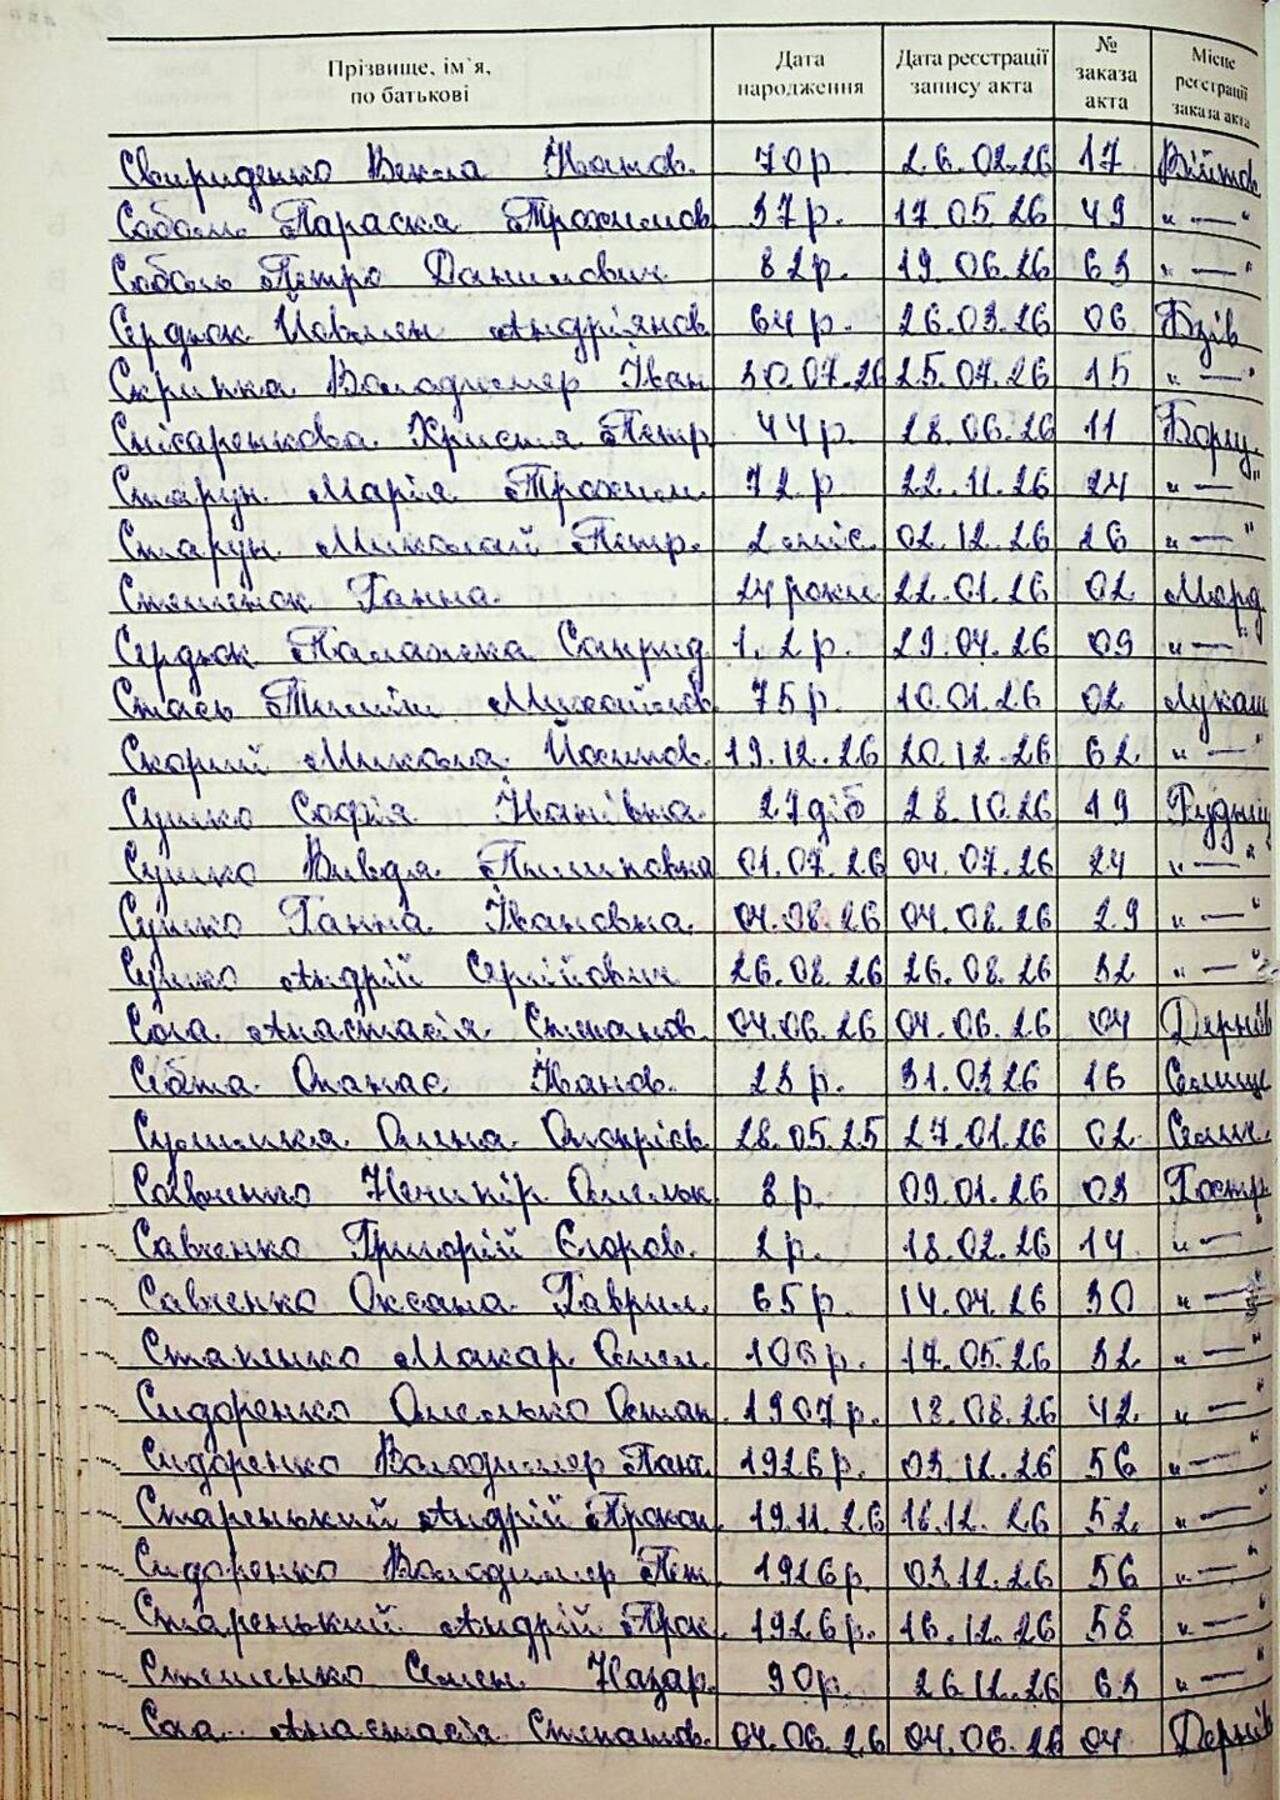 Прізвище, ім`я, по батькові Дата народження Дата реєстрації запису акта № заказа акта Місце реєстрації заказа акта
Свириденко Векла Іванов. 70 р. 26.02.26 17 Війтов
Соболь Параска Трохимов 37 р. 17.05.26 49 "—"
Соболь Петро Данилович 82 р. 19.06.26 63 "—"
Сердюк Йовмен Андріянов 64 р. 26.03.26 06 Бзів
Скрипка Володимер Іван 30.07.26 25.07.26 15 "—"
Снісаренкова Христя Петр 44 р. 28.06.26 11 Борщ.
Старун Марія Трохим. 72 р. 22.11.26 24 "—"
Старун Миколай Петр. 2 міс. 02.12.26 26 "—"
Ганна. 24 роки 22.01.26 02 Морд
Сердюк Палажка 1.2 р. 29.04.26 09 "—"
Стась Михайлов. 75 р. 10.01.26 02 Лукаш
Скорий Микола Йосипов. 19.12.26 20.12.26 62. "—"
Сушко Софія Іванівна 27 діб 28.10.26 19 Рудниц
Сушко Пилиповна 01.07.26 04.07.26 24 "—"
Сушко Ганна Івановна. 04.08.26 04.08.26 29 "—"
Сушко Андрій Сергійович 26.08.26 26.08.26 32 "—"
Анастасія Степанов. 04.06.26 04.06.26 04 Дернів
Опанас Іванов. 23 р. 31.03.26 16 Селище
28.05.25 27.01.26 02 Селищ.
Савченко Ничипір Омельк 8 р. 09.01.26 03 Гостр
Савченко Григорій Єгоров. 2 р. 18.02.26 14 "—"
Савченко Оксана Гаврил. 65 р. 14.04.26 30 "—"
Макар Омел. 106 р. 17.05.26 32 "—"
Сидоренко Омелько Остап. 1907 р. 18.08.26 42. "—"
Сидоренко Володимер Пант. 1926 р. 03.12.26 56 "—"
Старенький Андрій Прокоп. 19.11.26 16.12.26 52. "—"
Сидоренко Володимер 1926 р. 03.12.26 56 "—"
Старенький Андрій Прок. 1926 р. 16.12.26 58 "—"
Стешенко Семен Назар. 90 р. 26.12.26 63 "—"
Анастасія Степанов. 04.06.26 04.06.26 04 Дернів